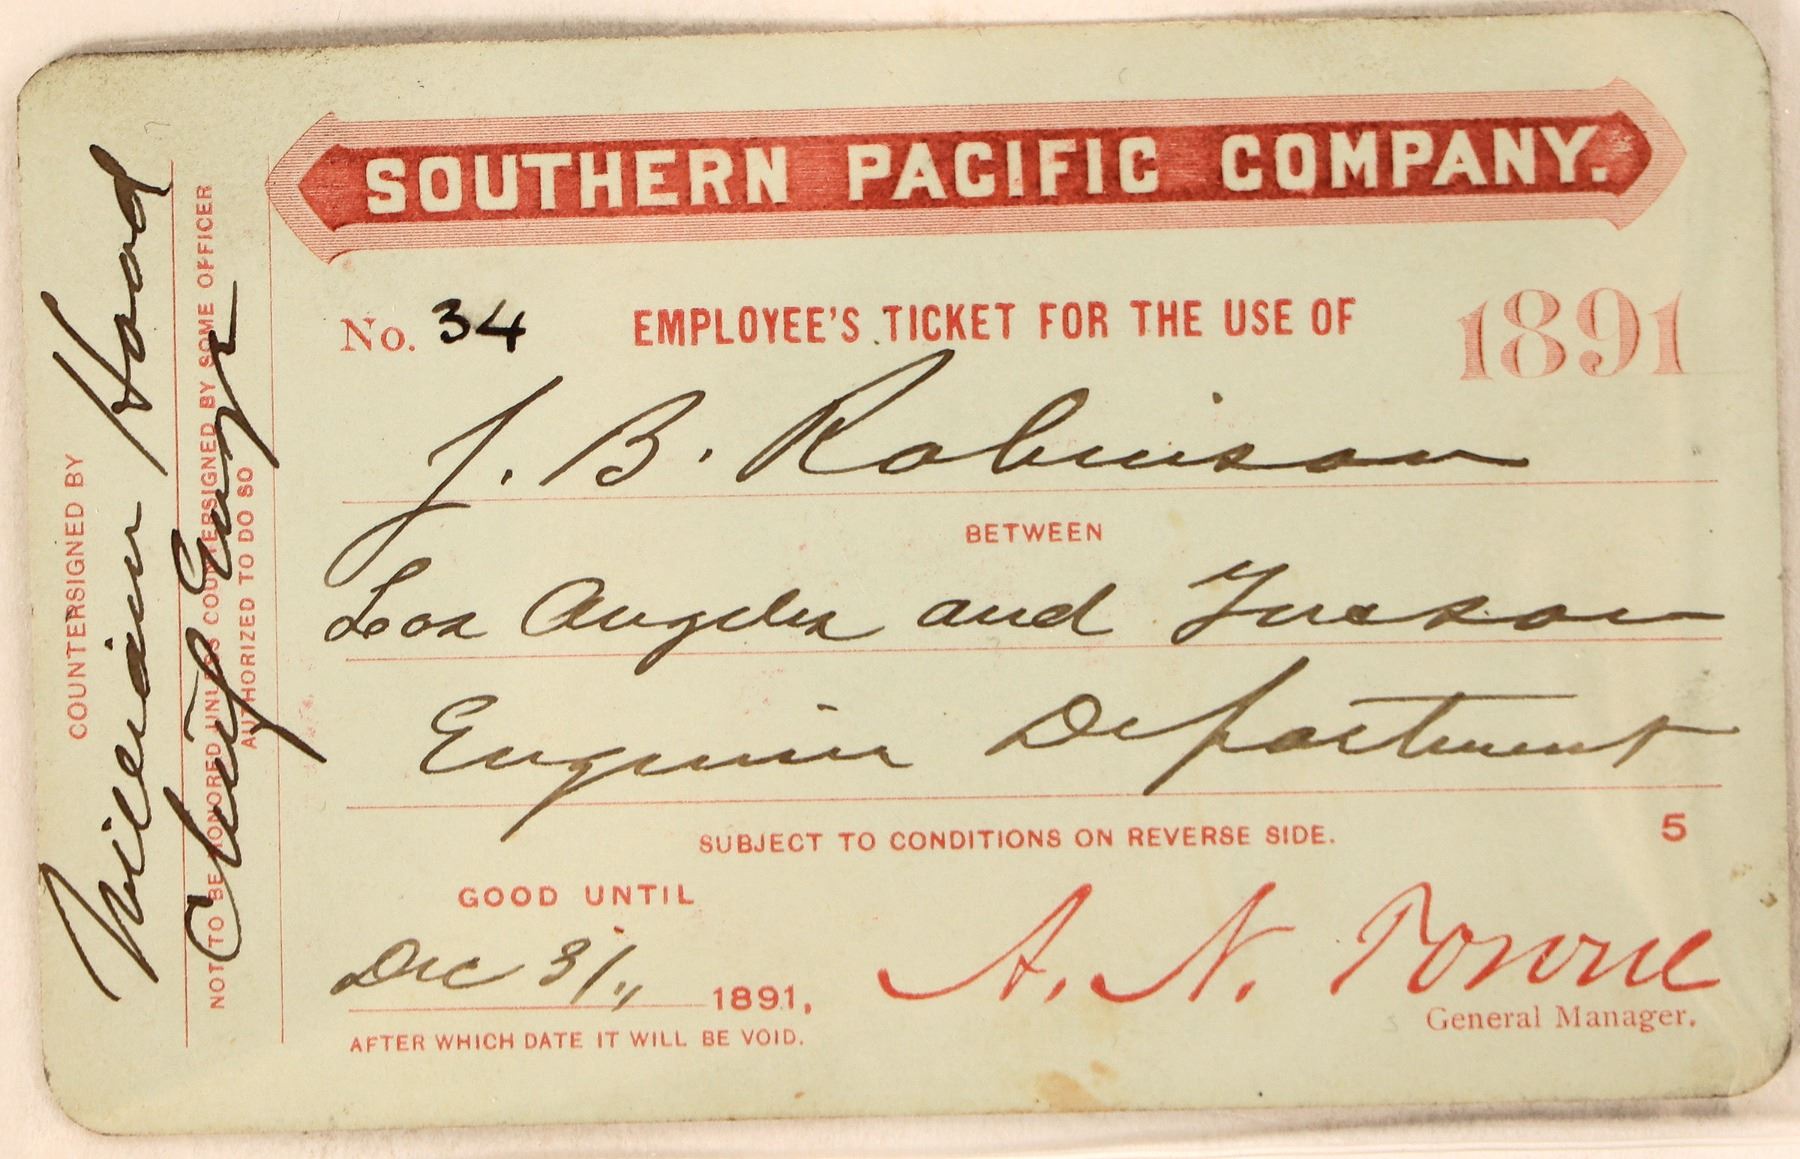 SOUTHERN PACIFIC COMPANY.
No. 34 EMPLOYEE'S TICKET FOR THE USE OF 1891
J. B. Robinson
BETWEEN
Los Angeles and Tucson
Engineer Department
SUBJECT TO CONDITIONS ON REVERSE SIDE. 5
GOOD UNTIL
Dec 31,, 1891,
AFTER WHICH DATE IT WILL BE VOID.
A. N. Towne
General Manager.
COUNTERSIGNED BY
William Hood
Chief Engr
NOT TO BE HONORED UNLESS COUNTERSIGNED BY SOME OFFICER
AUTHORIZED TO DO SO